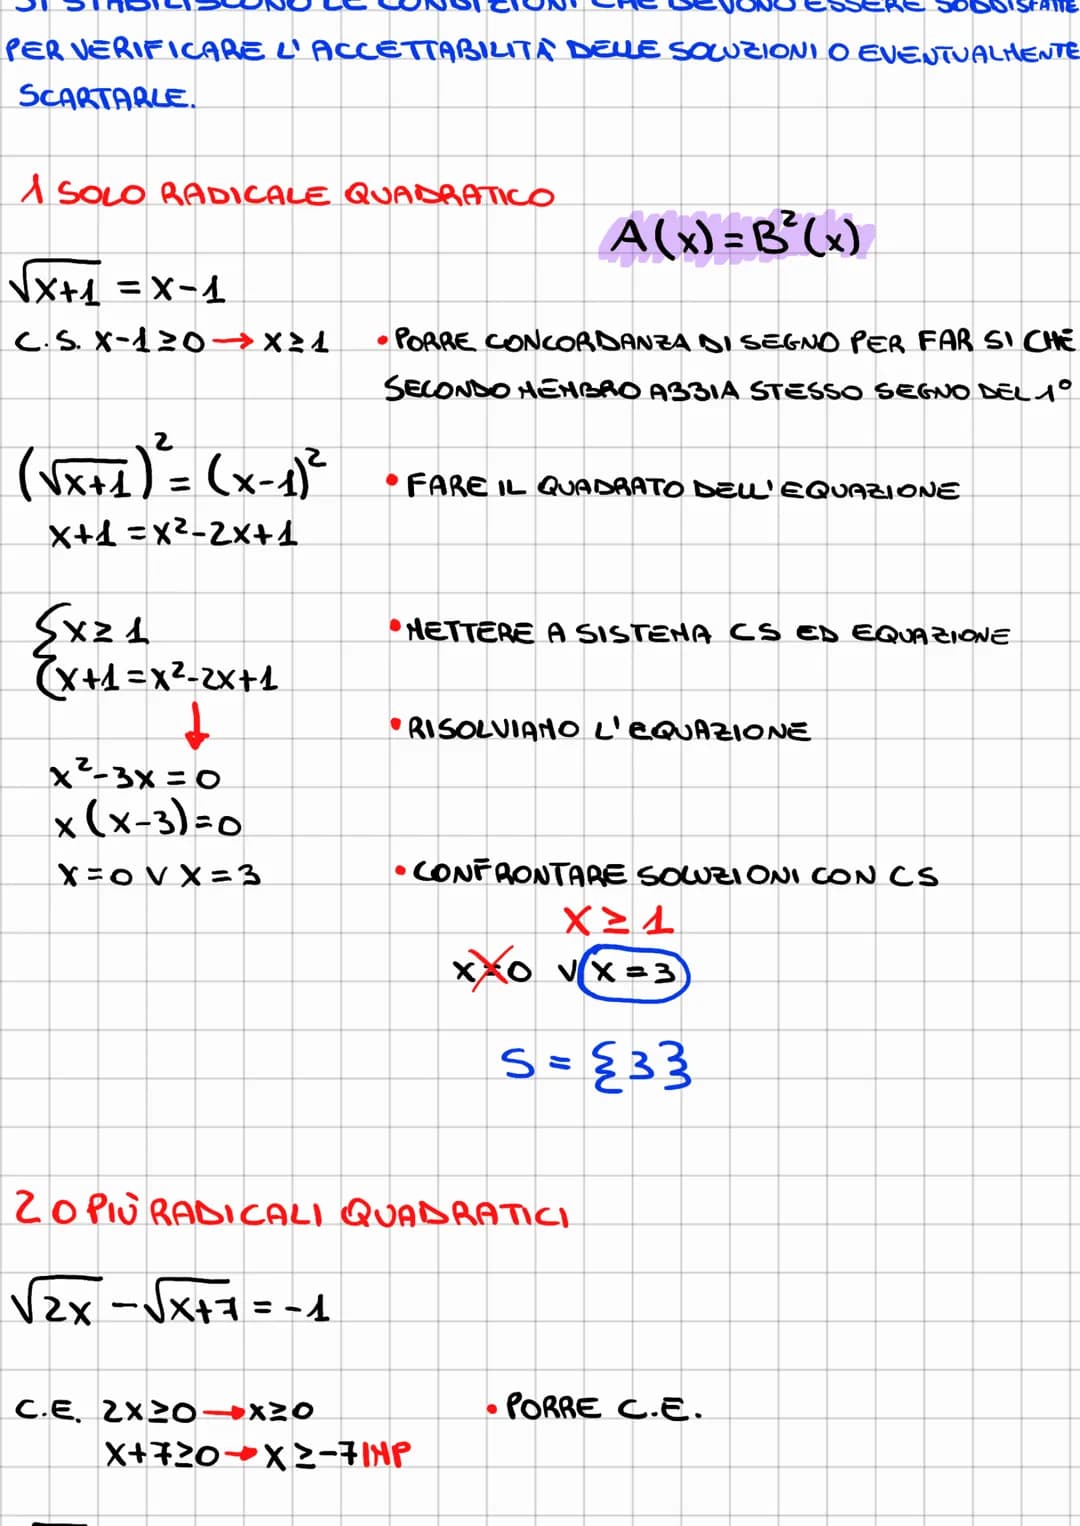 SI STABILISCONO LE CONDIZIONI CHE DEVONO ESSERE SODDISFATTE
PER VERIFICARE L'ACCETTABILITÀ DELLE SOLUZIONI O EVENTUALMENTE
SCARTARLE.
1 SOLO RADICALE QUADRATICO
A(x)=B²(x)
√x+1 = x-1
C.S. x-1≥0→x≥1
• PORRE CONCORDANZA DI SEGNO PER FAR SI CHE
SECONDO MEMBRO ABBIA STESSO SEGNO DEL 1°
(√x+1)² = (x-1)²
• FARE IL QUADRATO DELL'EQUAZIONE
x+1 = x²-2x+1
{x≥1
{x+1=x²-2x+1
• METTERE A SISTEMA CS ED EQUAZIONE
↓
• RISOLVIAMO L'EQUAZIONE
x²-3x=0
x(x-3)=0
x=0 ∨ x=3
• CONFRONTARE SOLUZIONI CON CS
x≥1
x=0 ∨ x=3
S={3}
2 O PIÙ RADICALI QUADRATICI
√2x -√x+7 = -1
C.E. 2x≥0→x≥0
• PORRE C.E.
x+7≥0→x≥-7 IMP